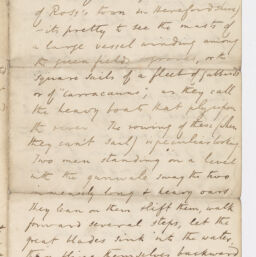 of Ross, town in Herefordshire
- its pretty to see the masts of
a large vessel winding among
the green fields & groves, or the
square sails of a fleet of
or of "as they call
the heavy boats that ply upon
the river. The rowing of these (when
they can't sail) is peculiar looking
Two men standing on a level
with the gunwale swag the two
immensely long & heavy oars.
they lean on them shift them walk
forward several steps, let the
great blades sink into the water,
themselves backward